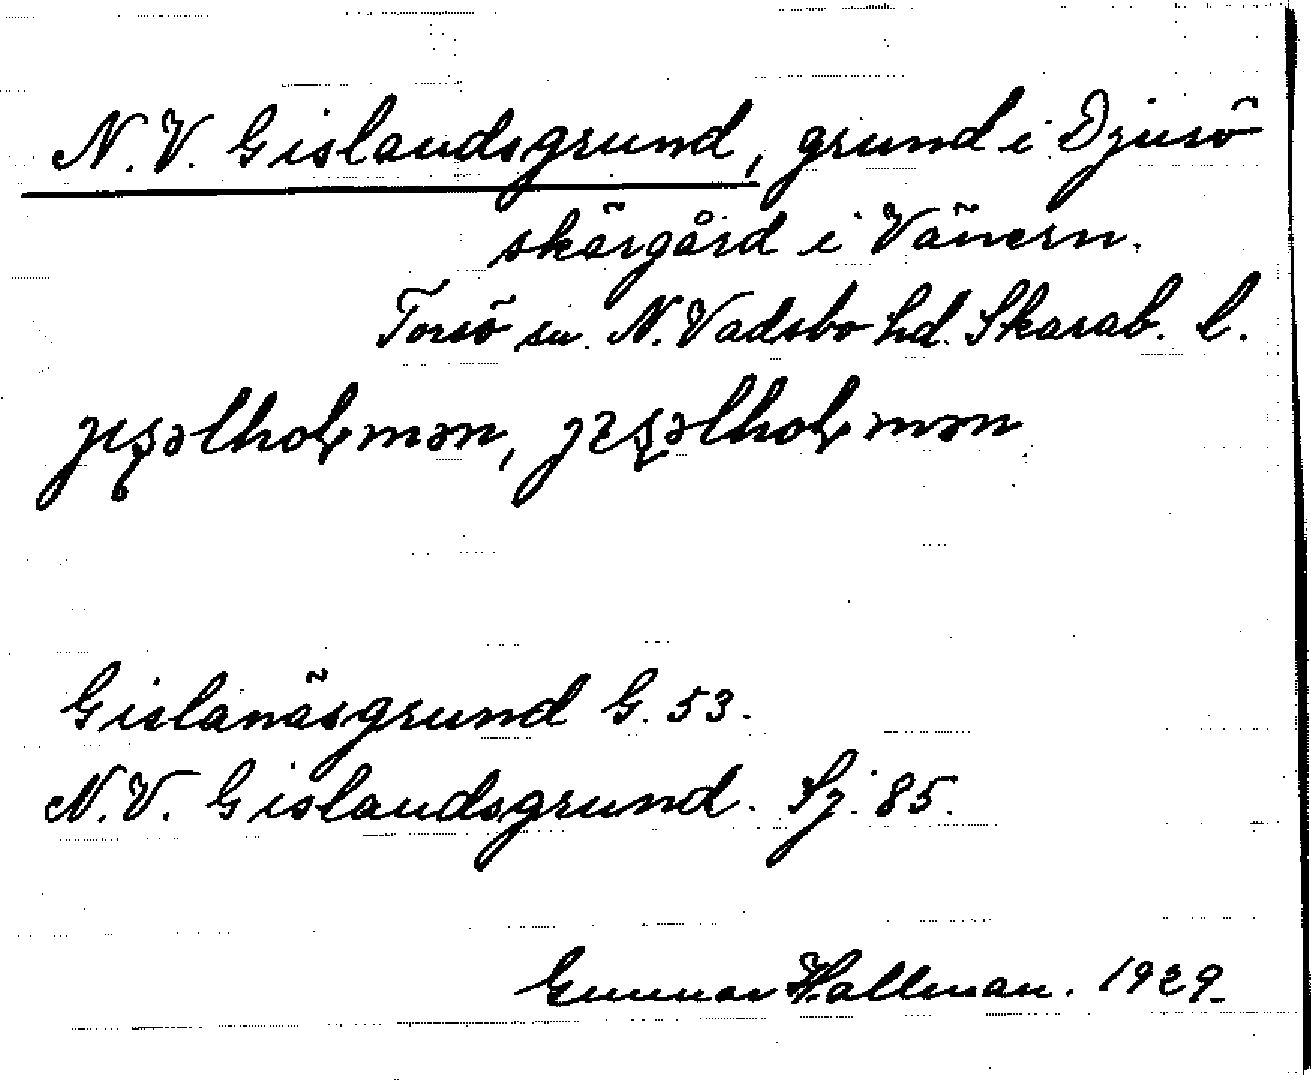 N.V. Gislandsgrund, grund i Djurö
skärgård i Vänern.
Torsö sn. N. Vadsbo hd. Skarab. l.
Gislanäsgrund G. 53.
N.V. Gislandsgrund. Sj. 85.
Gunnar Hallman. 1929.